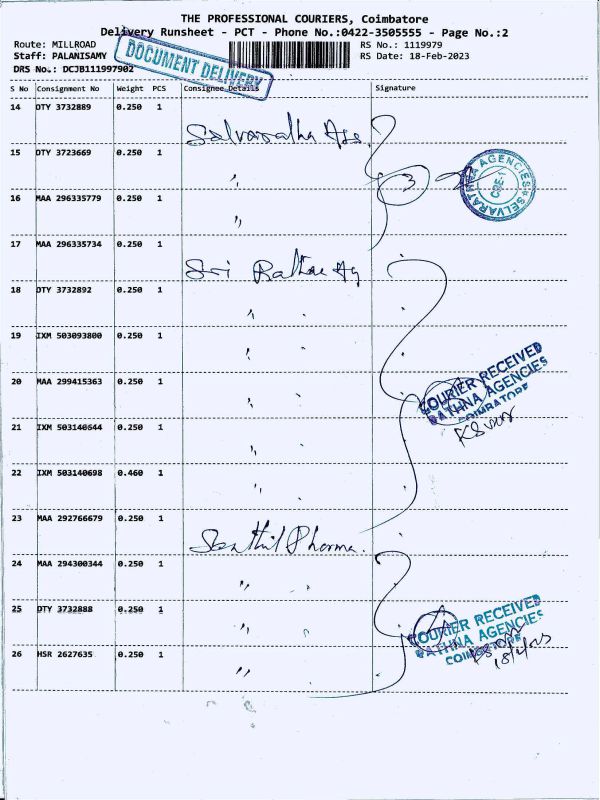 THE PROFESSIONAL COURIERS, Coimbatore
Delivery Runsheet - PCT - Phone No.:0422-3505555 - Page No.:2
Route: MILLROAD
Staff: PALANISAMY
DRS No.: DCJB111997902
DOCUMENT DELIVERY
RS No.: 1119979
RS Date: 18-Feb-2023
S No Consignment No Weight PCS Consignee Details Signature
14 DTY 3732889 0.250 1
15 DTY 3723669 0.250 1 " 3
SELVARATHNA AGENCIES CBE-1
16 MAA 296335779 0.250 1 "
17 MAA 296335734 0.250 1 Sri Rathna Ag
18 DTY 3732892 0.250 1 "
19 IXM 503093800 0.250 1 "
20 MAA 299415363 0.250 1 "
COURIER RECEIVED
RATHNA AGENCIES
COIMBATORE
21 IXM 503140644 0.250 1 "
22 IXM 503140698 0.460 1 "
23 MAA 292766679 0.250 1 Senthil Pharma
24 MAA 294300344 0.250 1 "
25 DTY 3732888 0.250 1 "
COURIER RECEIVED
RATHNA AGENCIES
COIMBATORE
26 HSR 2627635 0.250 1 "